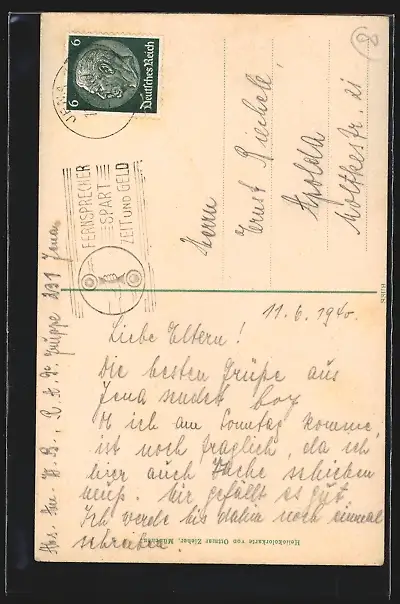 6 6
Deutsches Reich
JENA
FERNSPRECHER
SPART
ZEIT UND GELD
Herrn
Ernst Riechelt
Apolda
Moltkestr. 21
11.6.1940.
Liebe Eltern!
Die besten Grüße aus
Jena sendet
Ob ich am Sonntag komme,
ist noch fraglich, da ich
hier auch Wache schieben
muß. Mir gefällt es gut.
Ich werde bis dahin noch einmal
schreiben.
Abs. Gruppe 231 Jena
Heliokolorkarte von Ottmar Zieher, München
8